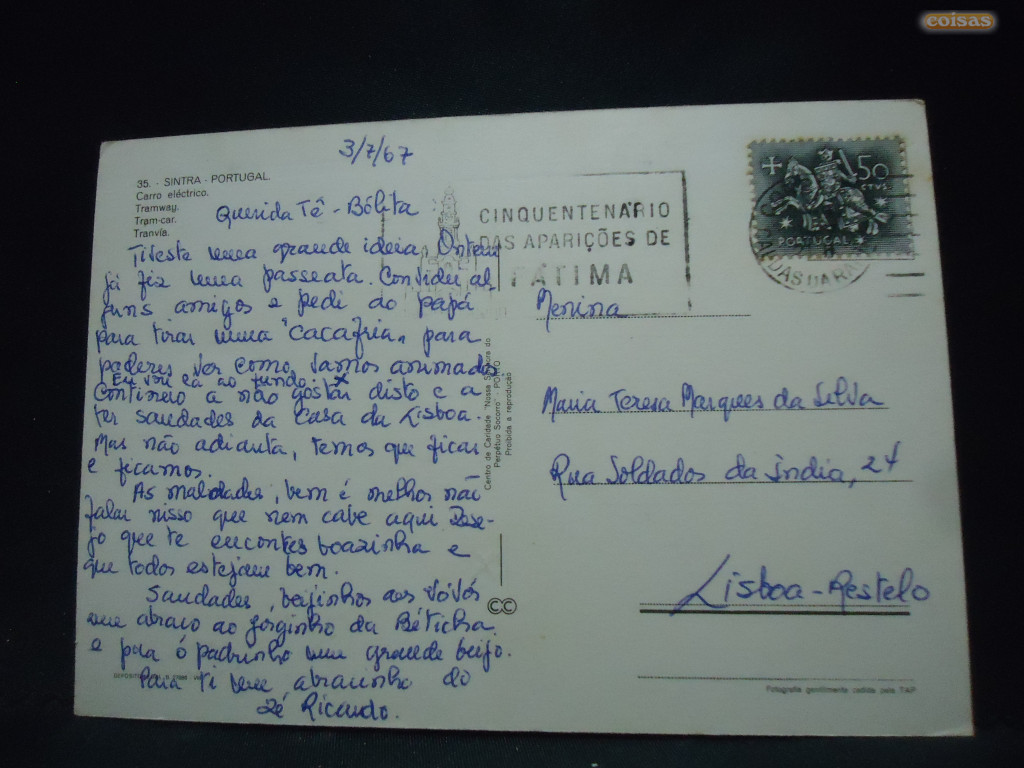 coisas
3/7/67
35. - SINTRA - PORTUGAL.
Carro eléctrico.
Tramway.
Tram-car.
Tranvía.
Querida Tê-Bélita
Tiveste uma grande ideia. Ontem
já fiz uma passeata. Convidei al
guns amigos e pedi ao papá
para tirar uma "cacafria" para
poderes ver como vamos animados
Eu vou lá ao fundo. x
Continuo a não gostar disto e a
ter saudades da casa da Lisboa.
Mas não adianta, temos que ficar
e ficamos.
As maldades, bem é melhor não
falar nisso que nem cabe aqui Dese-
jo que te encontes boazinha e
que todos estejam bem.
Saudades, beijinhos aos Vóvós
um abraco ao Jorginho da Béticha
e para ó padrinho um grande beijo.
Para ti um abracinho do
Zé Ricardo.
Centro de Caridade "Nossa Senhora do
Perpétuo Socorro" - PORTO
Proibida a reprodução
CINQUENTENÁRIO
DAS APARIÇÕES DE
FÁTIMA
50
CTVS.
PORTUGAL
Menina
Maria Teresa Marques da Silva
Rua Soldados da Índia, 24
Lisboa-Restelo
CC
Fotografia gentilmente cedida pela TAP